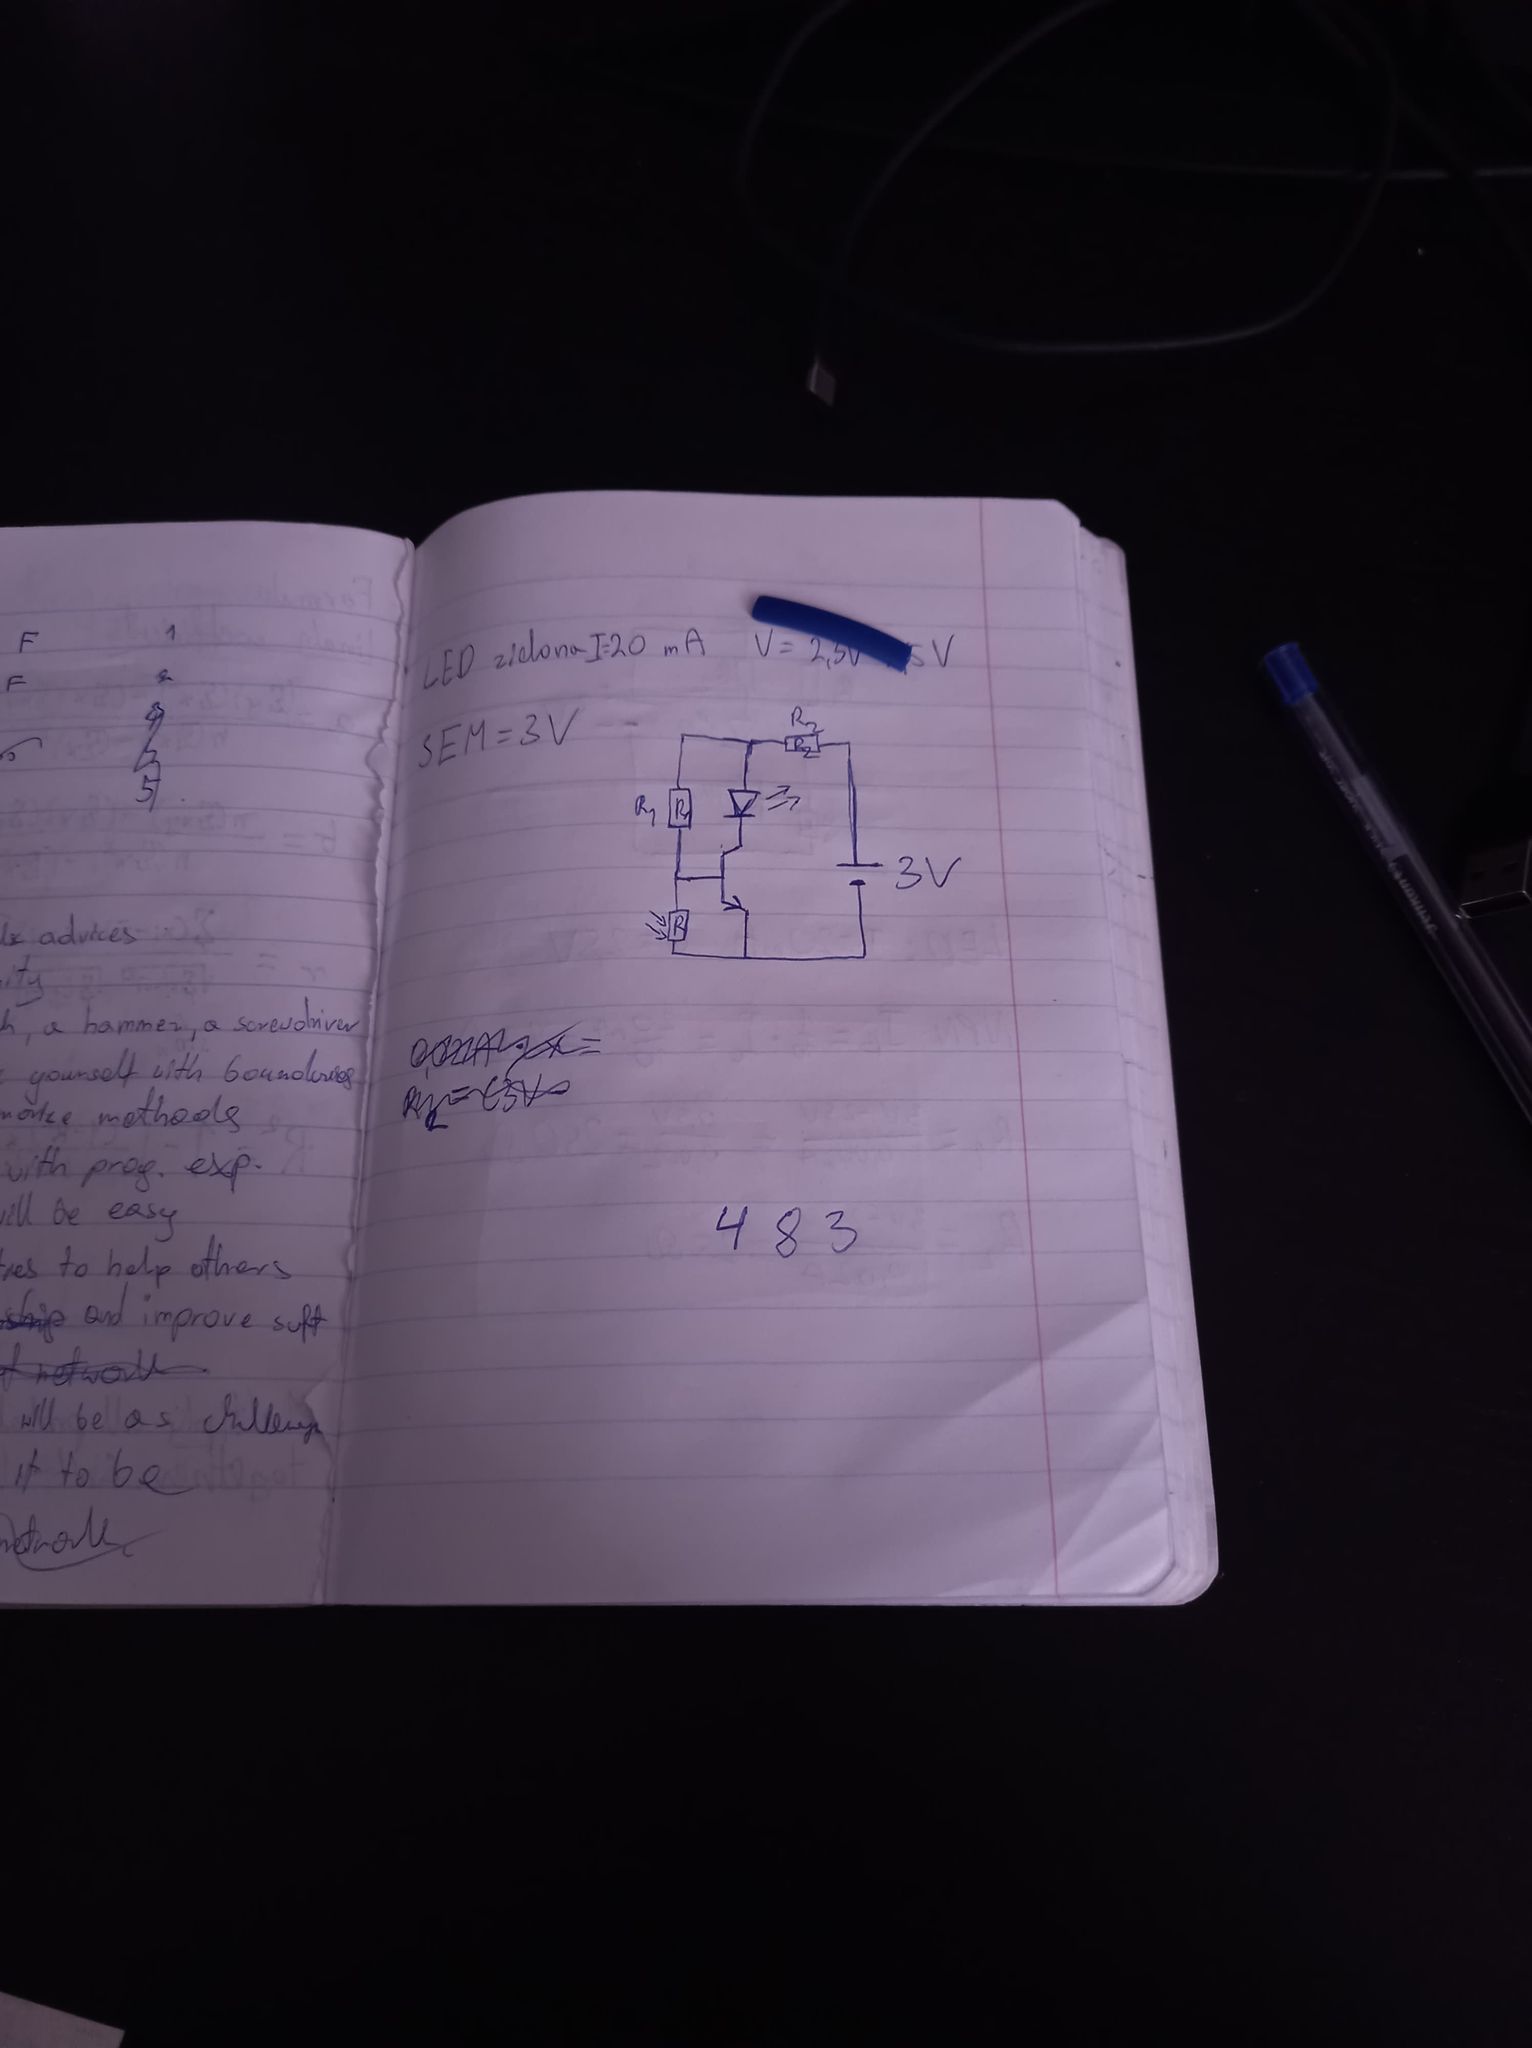 F 1
F 2
3
5
advices
ity
h, a hammer, a screwdriver
yourself with boundaries
methods
with prog. exp.
will be easy
to help others
and improve soft
network
will be as challenge
it to be
network
LED zielona I=20 mA V= 2,5V 5V
SEM=3V
R2
R2
R1 R1
3V
R
R2=(3V
4 8 3